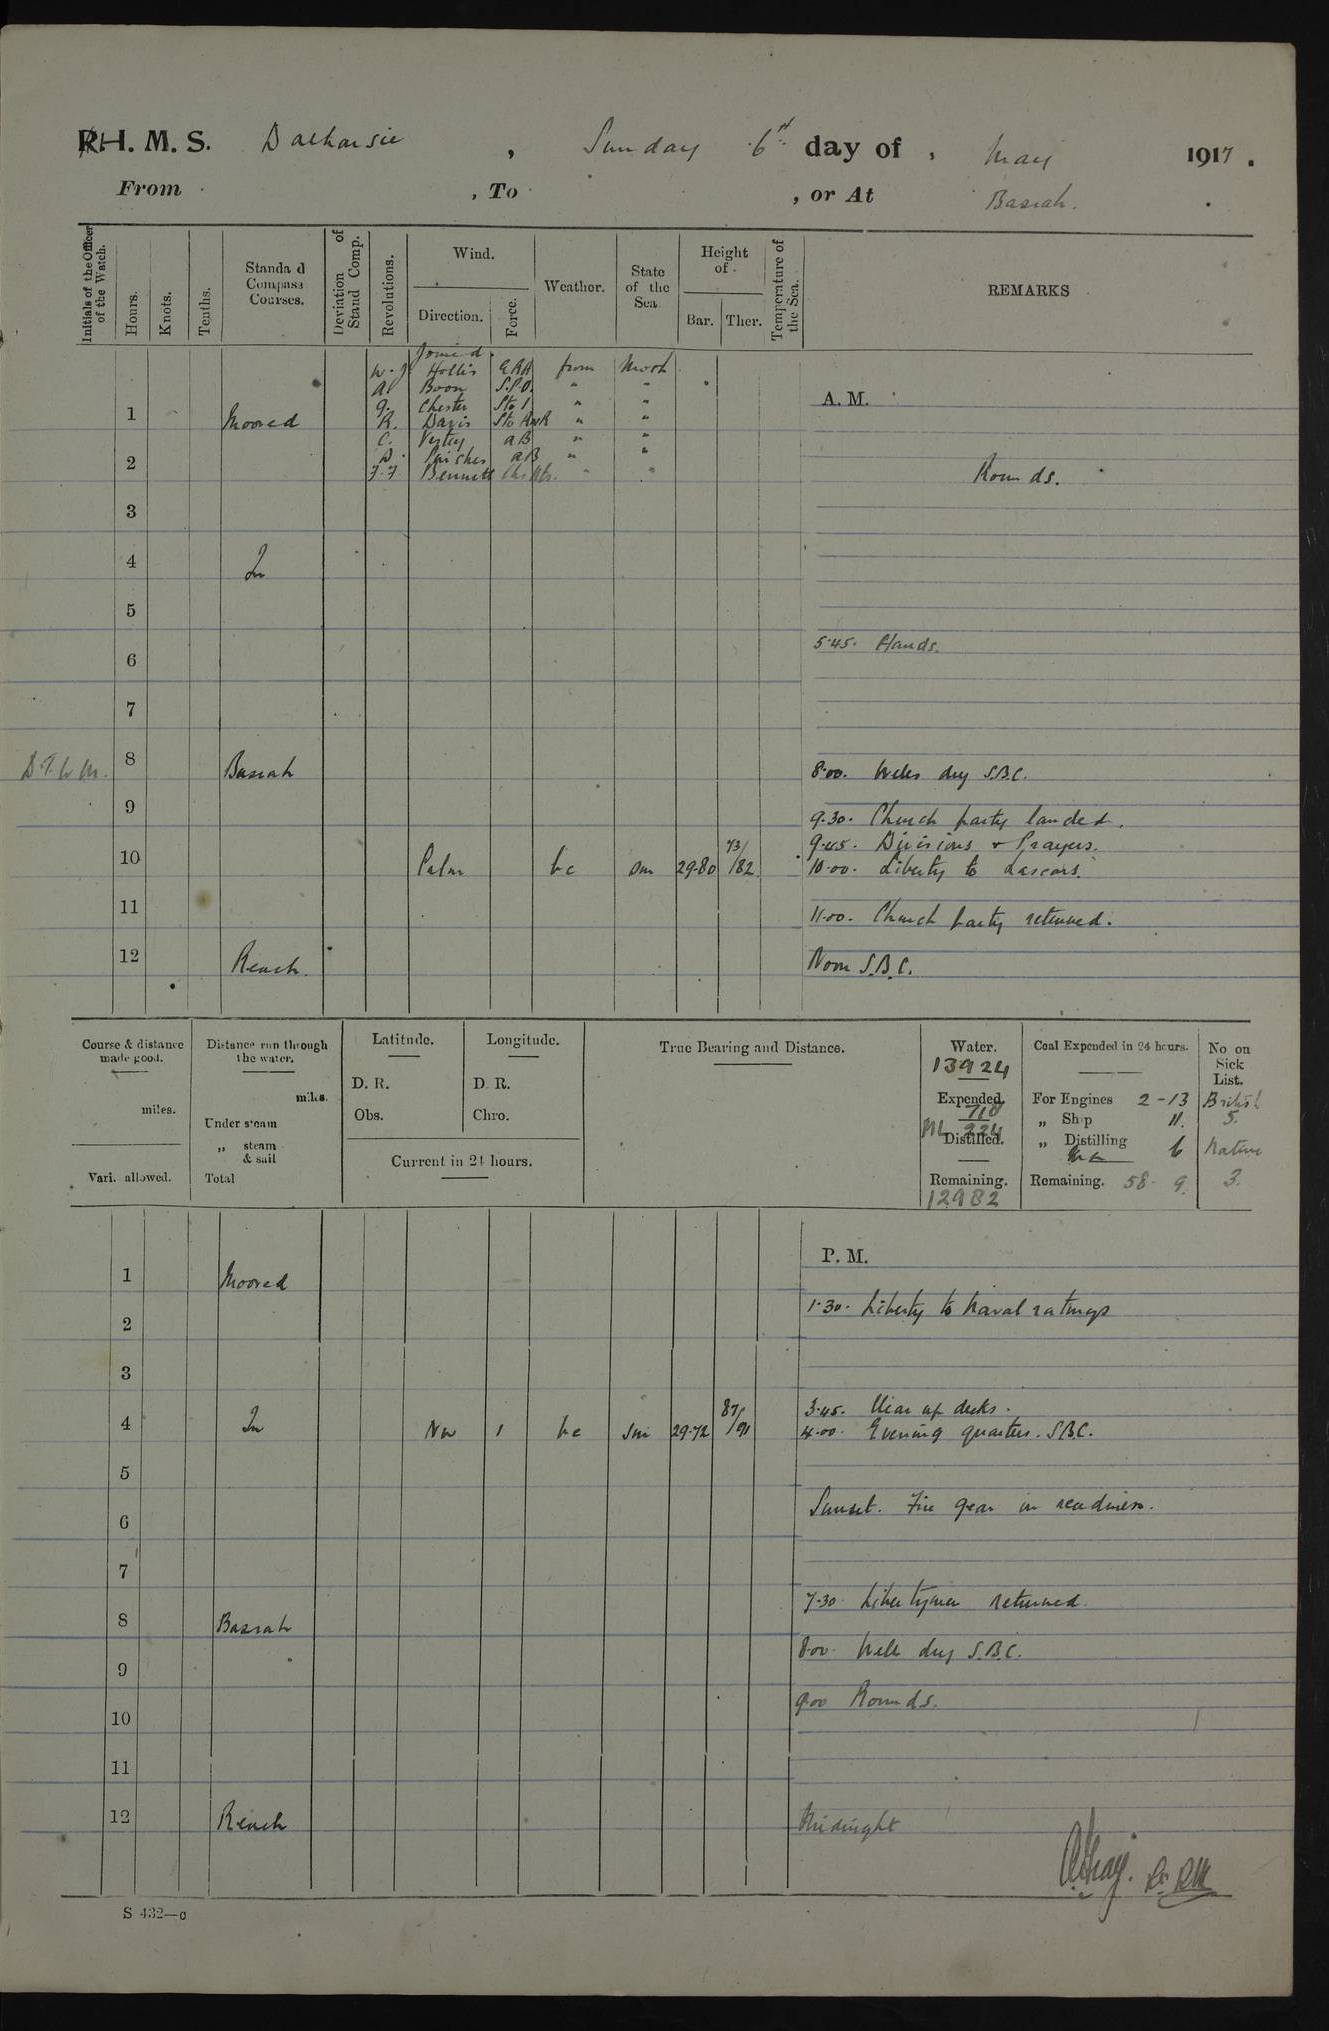 R.H. M. S. Dalhousie , Sunday 6th day of , May 1917.
From , To , or At Basrah.
Initials of the Officer of the Watch.
Hours.
Knots.
Tenths.
Standa d Compass Courses.
Deviation of Stand Comp.
Revolutions.
Wind.
Direction.
Force.
Weather.
State of the Sea
Height of
Bar. Ther.
Temperature of the Sea.
REMARKS
Joined.
W. J Hollis ERA from
A Boon S.P.O. " "
A. M.
G. Chester Sto 1 " "
1 Moored R. Davis Sto " "
C. AB " "
D. AB " "
2 F.F. Bennett " " Rounds.
3
4 In
5
5.45. Hands.
6
7
8 Basrah 8.00. Wells dry S.B.C.
9
9.30. Church party landed.
9.45. Divisions + Prayers.
10 Calm bc sm 29.80 73/82 10.00. Liberty to Lascars.
11
11.00. Church party returned.
12 Reach. Noon S.B.C.
Course & distance made good.
miles.
Vari. allowed.
Distance run through the water.
miles.
Under steam
„ steam & sail
Total
Latitude.
D. R.
Obs.
Longitude.
D. R.
Chro.
Current in 24 hours.
True Bearing and Distance.
Water.
13924
Expended.
718
224
Distilled.
Remaining.
12982
Coal Expended in 24 hours.
For Engines 2-13
„ Ship 11.
„ Distilling 6
Remaining. 58- 9.
No on Sick List.
British
5.
Native
3.
P. M.
1 Moored
1.30. Liberty to Naval ratings
2
3
3.45. Clear up decks.
4 In NW 1 bc sm 29.72 87/91 4.00. Evening quarters. S.B.C.
5
Sunset. Fire gear in readiness.
6
7
7.30. Libertymen returned.
8 Basrah
8.00. Wells dry S.B.C.
9
9.00 Rounds.
10
11
12 Reach Midnight
S 432—c